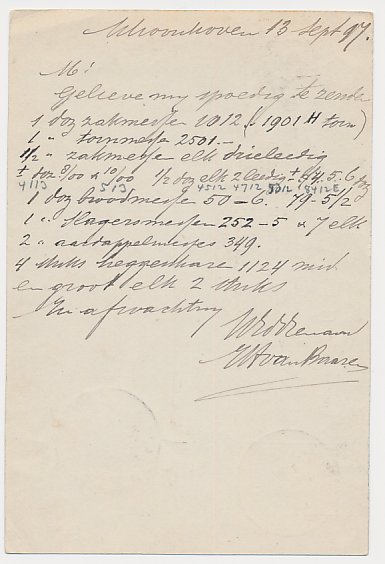 Schoonhoven 13 Sept 97.
M!
Gelieve my spoedig te zenden
1 doz zakmesse 1912 (1901 H torn)
1 " tornmesse 2501 -
1/2 " zakmesse elk drieledig
1/2 doz elk 2 ledig 4. 5. 6 doz
4113 513 4512 4712 5012 8412E
1 doz broodmesse 50 - 6. 79 - 5 1/2
1 " Slagersmessen 252 - 5 a 7 elk
2 " aardappelmesjes 349.
4 stuks heggeschare 1124 mid
en groot elk 2 stuks
In afwachting
UEd Dienaar
van Baaren